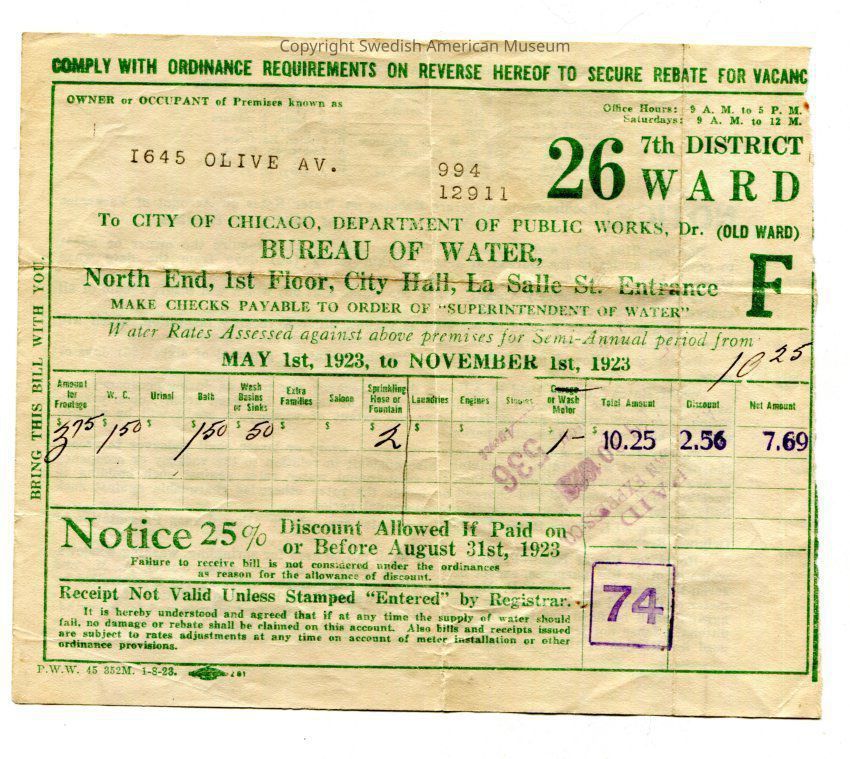 Copyright Swedish American Museum
COMPLY WITH ORDINANCE REQUIREMENTS ON REVERSE HEREOF TO SECURE REBATE FOR VACANC
OWNER or OCCUPANT of Premises known as
Office Hours: 9 A. M. to 5 P. M.
Saturdays: 9 A. M. to 12 M.
1645 OLIVE AV.
994
12911
26 7th DISTRICT
WARD
To CITY OF CHICAGO, DEPARTMENT OF PUBLIC WORKS, Dr. (OLD WARD)
BUREAU OF WATER,
F
North End, 1st Floor, City Hall, La Salle St. Entrance
MAKE CHECKS PAYABLE TO ORDER OF "SUPERINTENDENT OF WATER"
BRING THIS BILL WITH YOU.
Water Rates Assessed against above premises for Semi-Annual period from
MAY 1st, 1923, to NOVEMBER 1st, 1923
10 25
Amount for Frontage W. C. Urinal Bath Wash Basins or Sinks Extra Families Saloon Sprinkling Hose or Fountain Laundries Engines Garage or Wash Motor Total Amount Discount Net Amount
$ 3 75 $ 1 50 $ $ 1 50 $ 50 $ $ $ 2 $ $ $ $ 1 - $ 10.25 2.56 7.69
536
PAID
Notice 25% Discount Allowed If Paid on
or Before August 31st, 1923
Failure to receive bill is not considered under the ordinances
as reason for the allowance of discount.
Receipt Not Valid Unless Stamped "Entered" by Registrar.
74
It is hereby understood and agreed that if at any time the supply of water should
fail, no damage or rebate shall be claimed on this account. Also bills and receipts issued
are subject to rates adjustments at any time on account of meter installation or other
ordinance provisions.
P.W.W. 45 352M. 1-8-23.